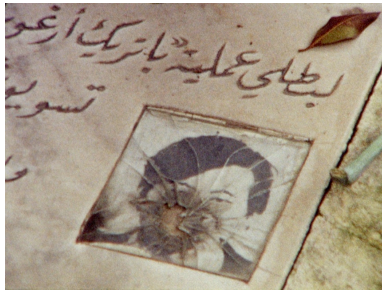 لبطلي عملية «باتريك أرغو
تسوي